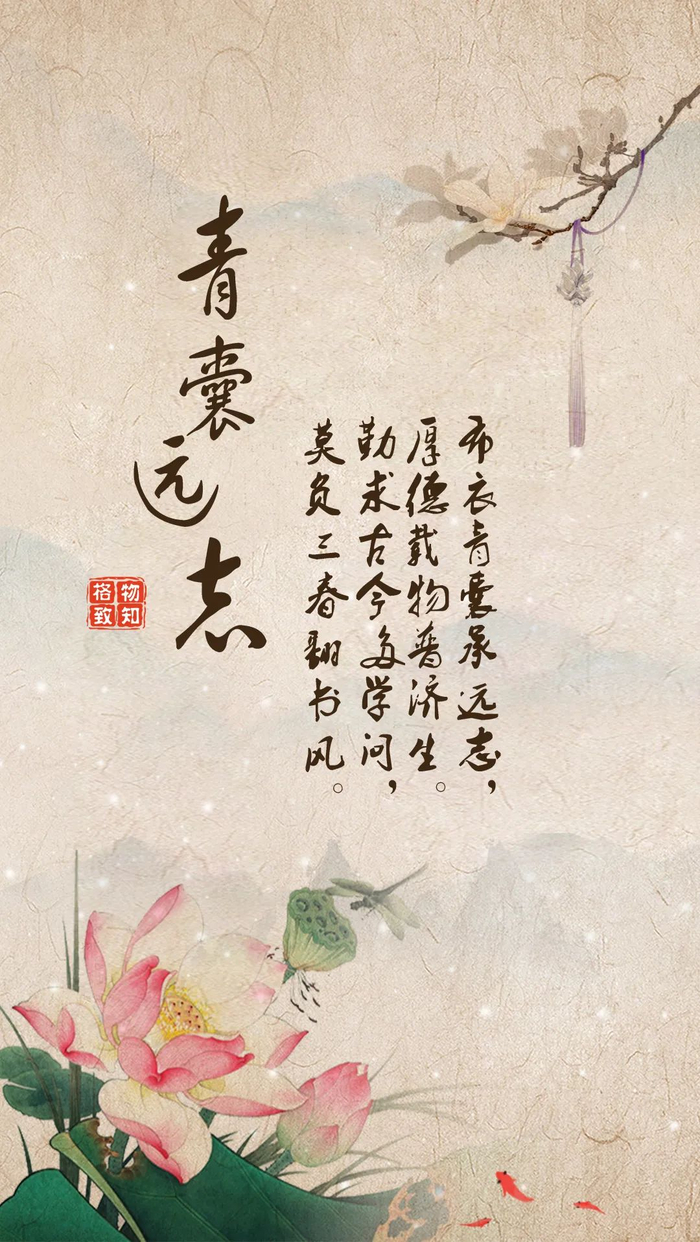 青囊远志
布衣青囊承远志，
厚德载物普济生。
勤求古今多学问，
莫负三春翻书风。
格物致知